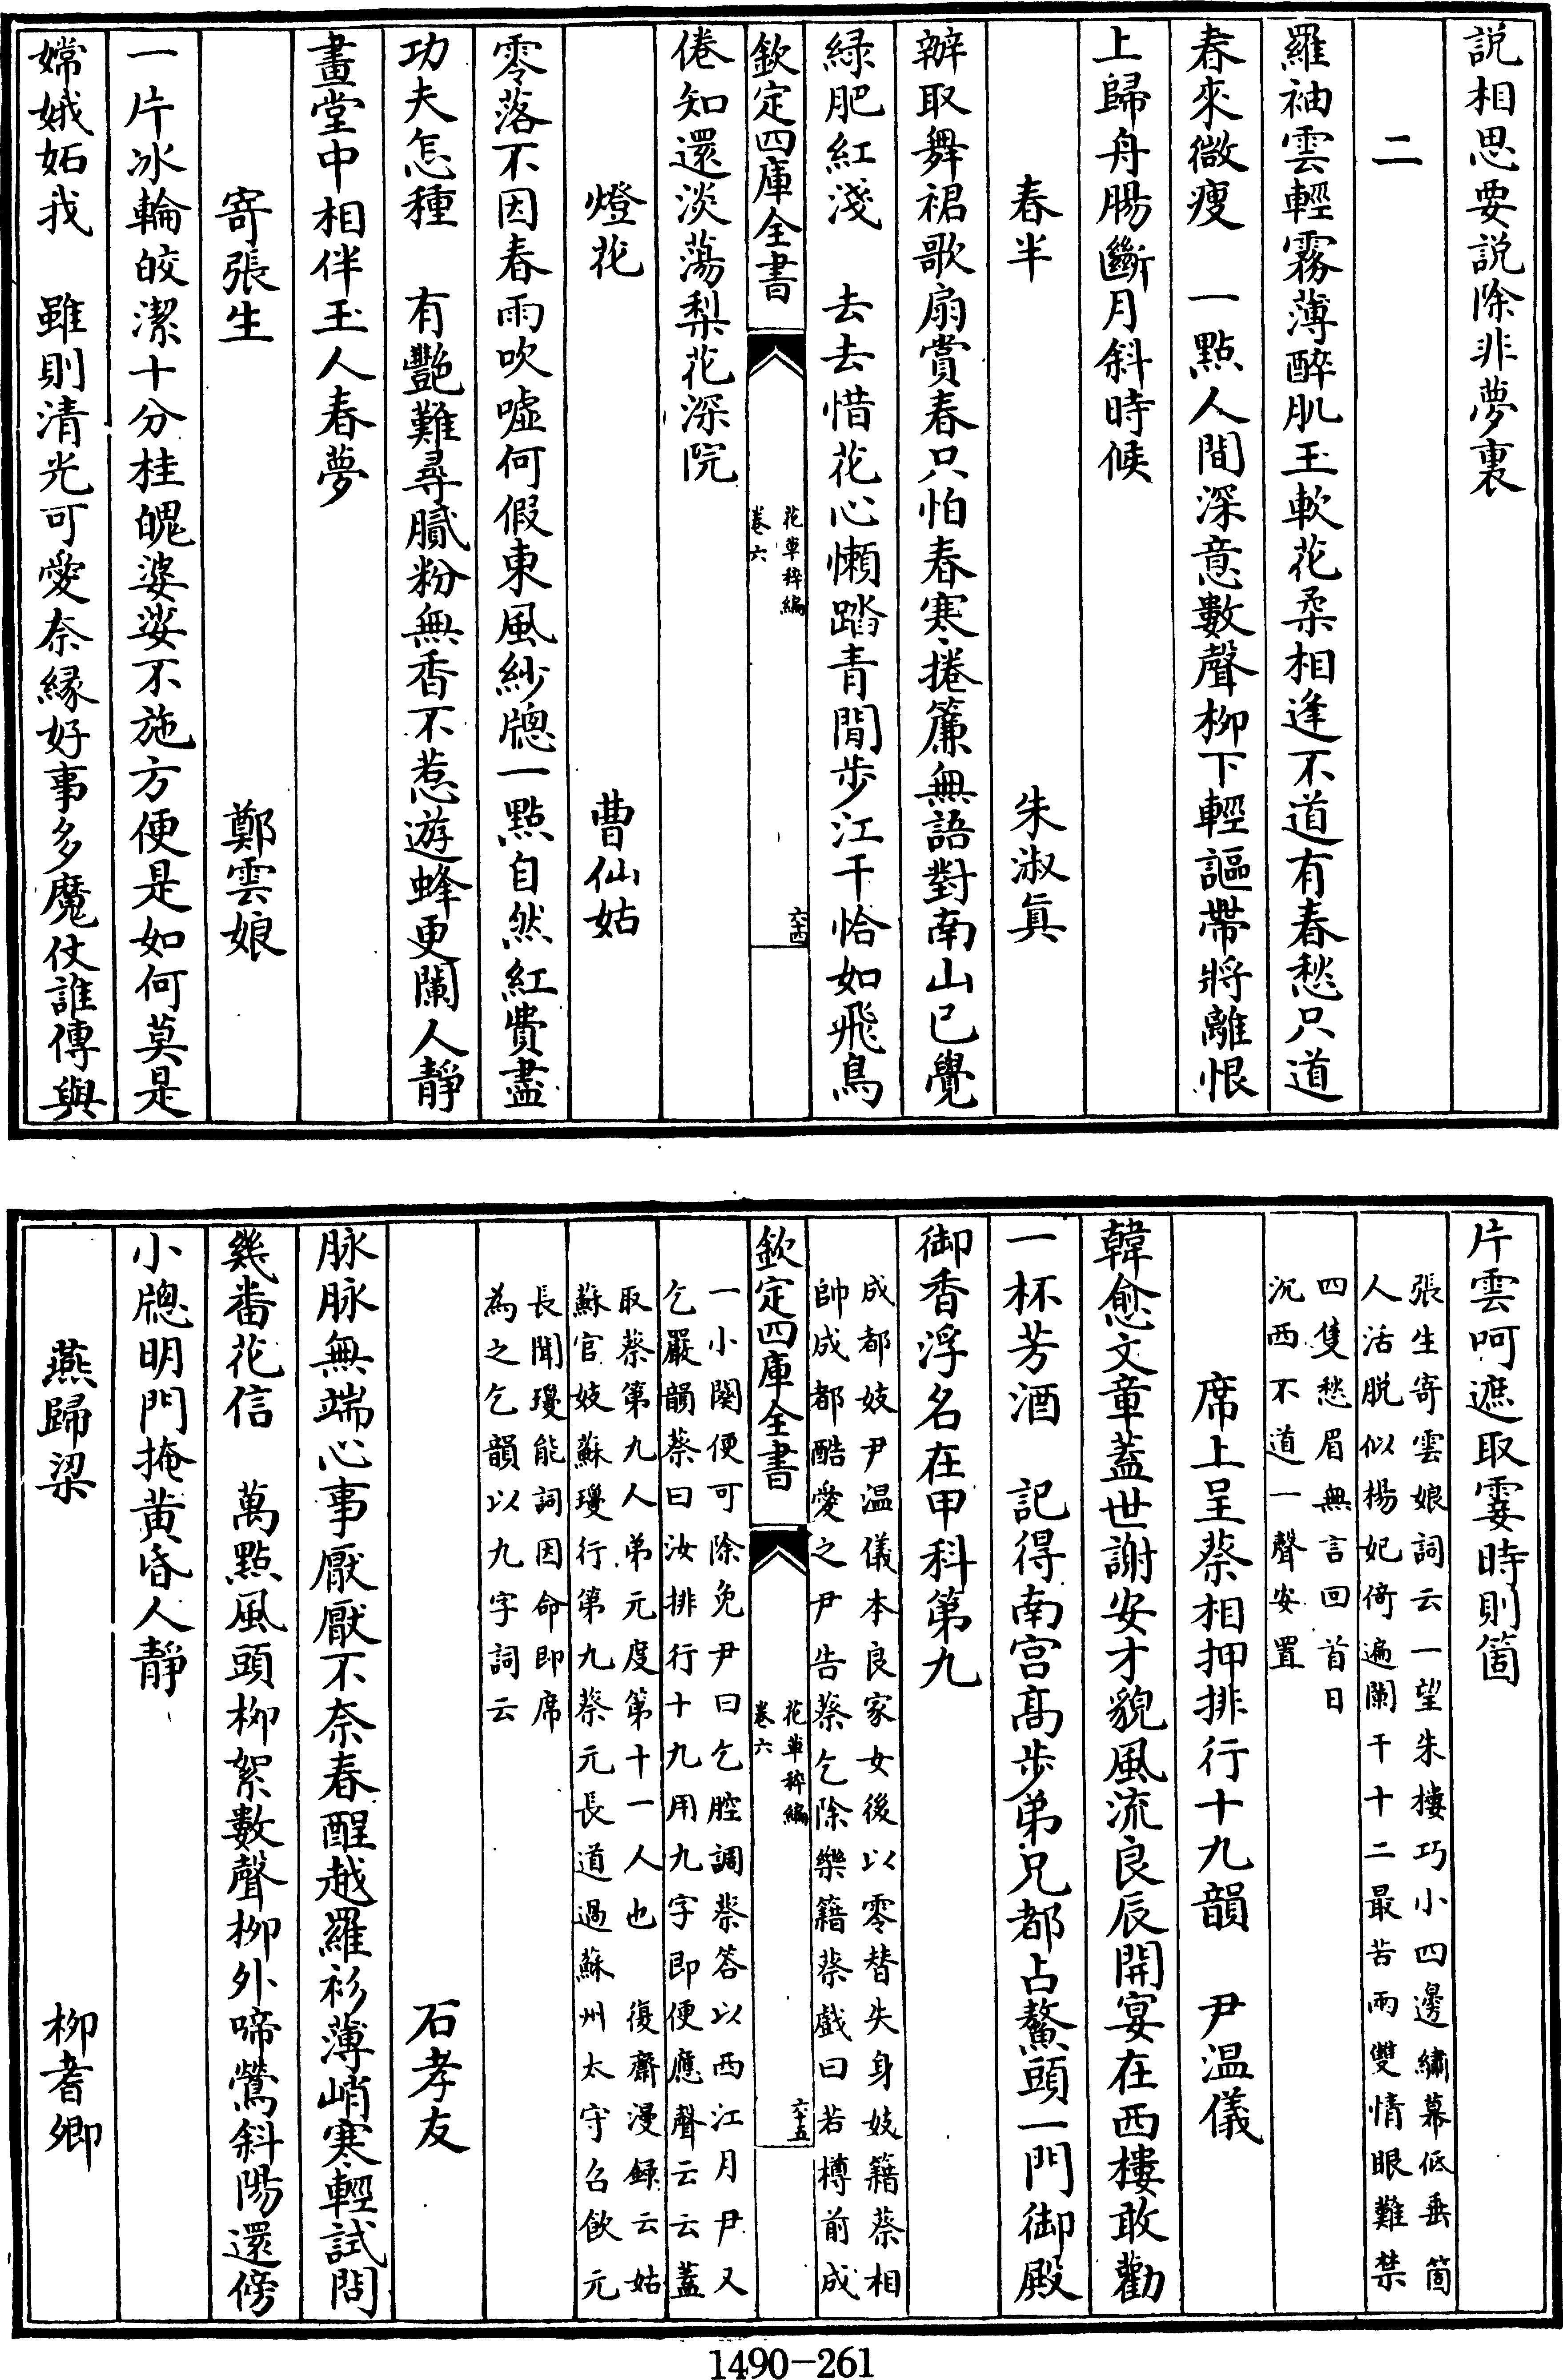 説相思要説除非夢裏
二
羅袖雲輕霧薄醉肌玉軟花柔相逢不道有春愁只道
春來微瘦　一點人間深意數聲柳下輕謳帶將離恨
上歸舟腸斷月斜時候
春半　朱淑真
辦取舞裙歌扇賞春只怕春寒捲簾無語對南山已覺
緑肥紅淺　去去惜花心懶踏青閒步江干恰如飛鳥
欽定四庫全書
花草稡編
卷六
六十四
倦知還淡蕩梨花深院
燈花　曹仙姑
零落不因春雨吹噓何假東風紗牕一點自然紅費盡
功夫怎種　有艷難尋膩粉無香不惹遊蜂更闌人靜
畫堂中相伴玉人春夢
寄張生　鄭雲娘
一片冰輪皎潔十分桂魄婆娑不施方便是如何莫是
嫦娥妬我　雖則清光可愛奈緣好事多魔仗誰傳與
片雲呵遮取霎時則箇
張生寄雲娘詞云一望朱樓巧小四邊繡幕低垂箇
人活脱似楊妃倚遍闌干十二最苦雨雙情眼難禁
四隻愁眉無言回首日
沉西不道一聲安置
席上呈蔡相押排行十九韻　尹温儀
韓愈文章蓋世謝安才貌風流良辰開宴在西樓敢勸
一杯芳酒　記得南宫髙步弟兄都占鰲頭一門御殿
御香浮名在甲科第九
成都妓尹温儀本良家女後以零替失身妓籍蔡相
帥成都酷愛之尹告蔡乞除樂籍蔡戲曰若樽前成
欽定四庫全書
花草稡編
卷六
六十五
一小闋便可除免尹曰乞腔調蔡答以西江月尹又
乞嚴韻蔡曰汝排行十九用九字即便應聲云云蓋
取蔡第九人弟元度第十一人也　復齋漫録云姑
蘇官妓蘇瓊行第九蔡元長道過蘇州太守召飲元
長聞瓊能詞因命即席
為之乞韻以九字詞云
石孝友
脉脉無端心事厭厭不奈春酲越羅衫薄峭寒輕試問
幾番花信　萬點風頭柳絮數聲柳外啼鶯斜陽還傍
小牕明門掩黄昏人靜
燕歸梁　柳耆卿
1490-261